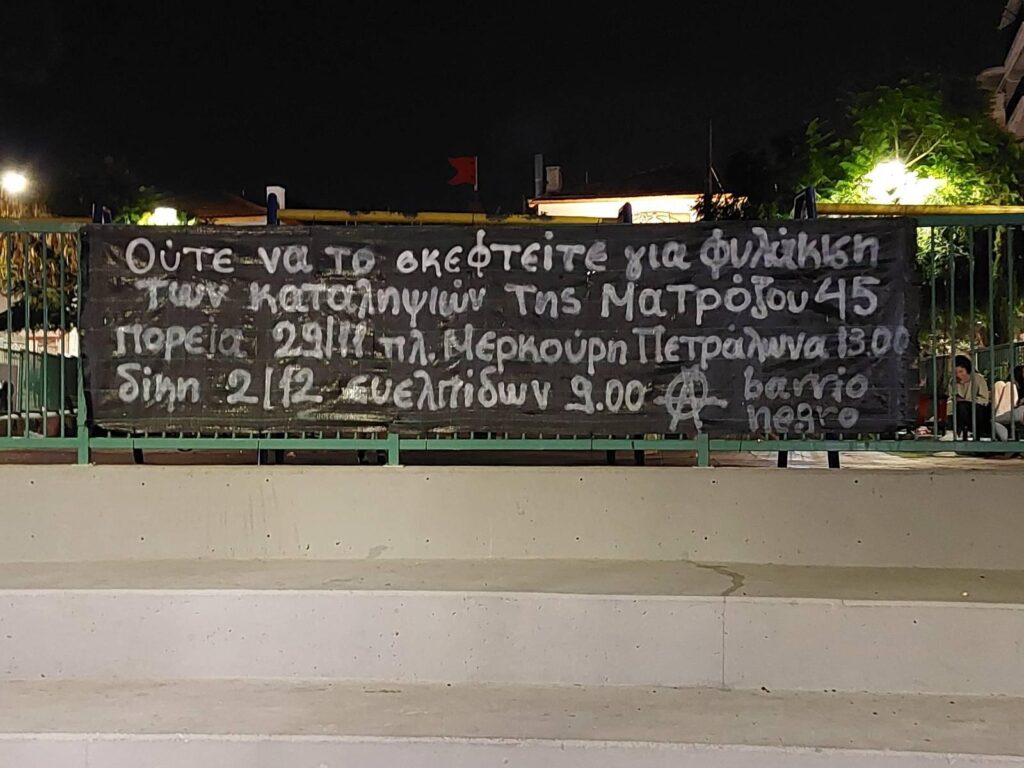 Ούτε να το σκεφτείτε για φυλάκιση
των καταληψιών της Ματρόζου 45
πορεία 29/11 πλ. Μερκούρη Πετράλωνα 13.00
δίκη 2/12 ευελπίδων 9.00 Ⓐ barrio
negro